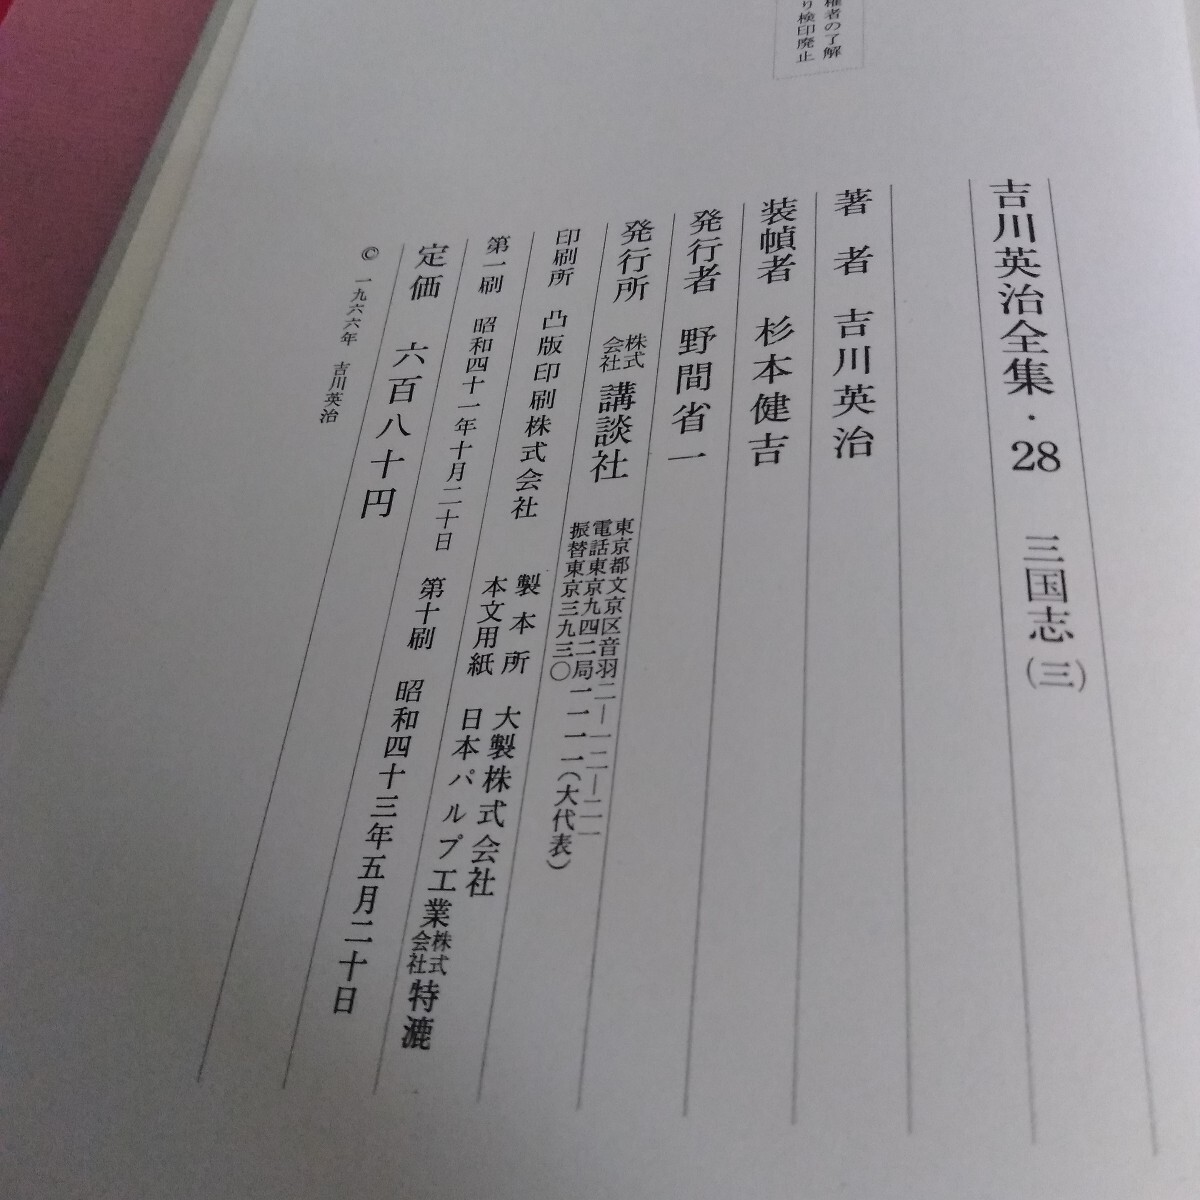 権者の了解
り検印廃止
吉川英治全集・28 三国志(三)
著者 吉川英治
装幀者 杉本健吉
発行者 野間省一
発行所 株式会社 講談社
東京都文京区音羽二―一二―二一
電話東京九四二局一一一一(大代表)
振替東京三九三〇
印刷所 凸版印刷株式会社
製本所 大製株式会社
本文用紙 日本パルプ工業株式会社特漉
第一刷 昭和四十一年十月二十日
第十刷 昭和四十三年五月二十日
定価 六百八十円
© 一九六六年 吉川英治